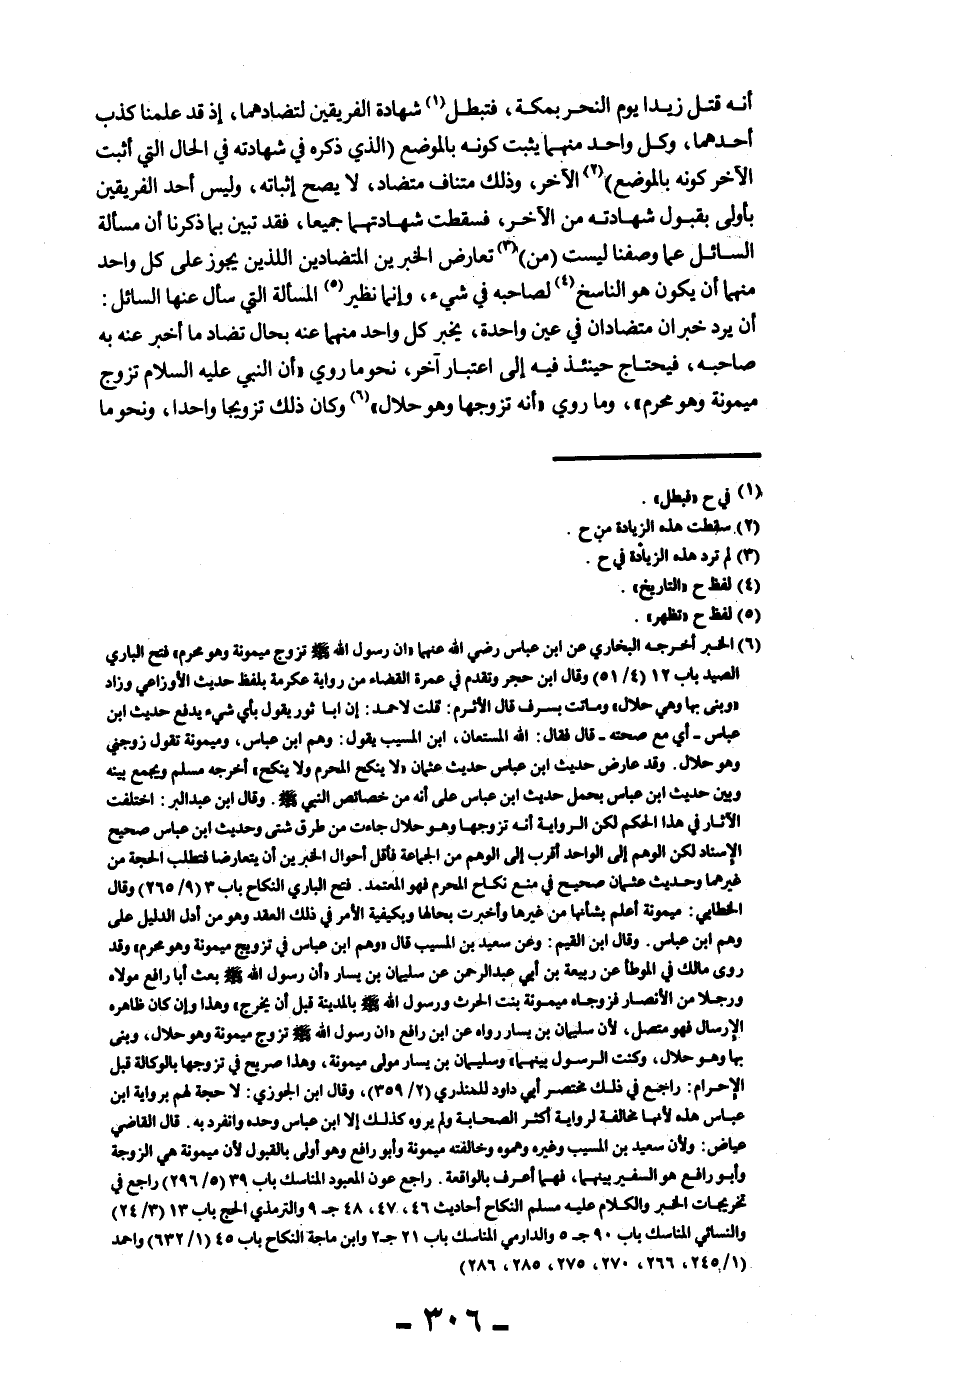 أنه قتل زيدا يوم النحر بمكة، فتبطل(١) شهادة الفريقين لتضادهما، إذ قد علمنا كذب
أحدهما، وكل واحد منهما يثبت كونه بالموضع (الذي ذكره في شهادته في الحال التي أثبت
الآخر كونه بالموضع)(٢) الآخر، وذلك متناف متضاد، لا يصح إثباته، وليس أحد الفريقين
بأولى بقبول شهادته من الآخر، فسقطت شهادتهما جميعا، فقد تبين بما ذكرنا أن مسألة
السائل عما وصفنا ليست (من)(٣) تعارض الخبرين المتضادين اللذين يجوز على كل واحد
منهما أن يكون هو الناسخ(٤) لصاحبه في شيء، وإنما نظير(٥) المسألة التي سأل عنها السائل:
أن يرد خبران متضادان في عين واحدة، يخبر كل واحد منهما عنه بحال تضاد ما أخبر عنه به
صاحبه، فيحتاج حينئذ فيه إلى اعتبار آخر، نحو ما روي «أن النبي عليه السلام تزوج
ميمونة وهو محرم»، وما روي «أنه تزوجها وهو حلال»(٦) وكان ذلك تزويجا واحدا، ونحو ما
(١) في ح «فبطل».
(٢) سقطت هذه الزيادة من ح.
(٣) لم ترد هذه الزيادة في ح.
(٤) لفظ ح «التاريخ».
(٥) لفظ ح «تظهر».
(٦) الخبر أخرجه البخاري عن ابن عباس رضي الله عنهما «ان رسول الله ﷺ تزوج ميمونة وهو محرم» فتح الباري
الصيد باب ١٢ (٤/ ٥١) وقال ابن حجر وتقدم في عمرة القضاء من رواية عكرمة بلفظ حديث الأوزاعي وزاد
«وبنى بها وهي حلال» وماتت بسرف قال الأثرم: قلت لاحمد: إن ابا ثور يقول بأي شيء يدفع حديث ابن
عباس - أي مع صحته - قال فقال: الله المستعان، ابن المسيب يقول: وهم ابن عباس، وميمونة تقول زوجني
وهو حلال. وقد عارض حديث ابن عباس حديث عثمان «لا ينكح المحرم ولا ينكح» أخرجه مسلم ويجمع بينه
وبين حديث ابن عباس بحمل حديث ابن عباس على أنه من خصائص النبي ﷺ. وقال ابن عبدالبر: اختلفت
الآثار في هذا الحكم لكن الرواية أنه تزوجها وهو حلال جاءت من طرق شتى وحديث ابن عباس صحيح
الإسناد لكن الوهم إلى الواحد أقرب إلى الوهم من الجماعة فأقل أحوال الخبرين أن يتعارضا فتطلب الحجة من
غيرهما وحديث عثمان صحيح في منع نكاح المحرم فهو المعتمد. فتح الباري النكاح باب ٣ (٩/ ٢٦٥) وقال
الخطابي: ميمونة أعلم بشأنها من غيرها وأخبرت بحالها وبكيفية الأمر في ذلك العقد وهو من أدل الدليل على
وهم ابن عباس. وقال ابن القيم: وعن سعيد بن المسيب قال «وهم ابن عباس في تزويج ميمونة وهو محرم» وقد
روى مالك في الموطأ عن ربيعة بن أبي عبدالرحمن عن سليمان بن يسار «أن رسول الله ﷺ بعث أبا رافع مولاه
ورجلا من الأنصار فزوجاه ميمونة بنت الحرث ورسول الله ﷺ بالمدينة قبل أن يخرج» وهذا وإن كان ظاهره
الإرسال فهو متصل، لأن سليمان بن يسار رواه عن ابن رافع «ان رسول الله ﷺ تزوج ميمونة وهو حلال، وبنى
بها وهو حلال، وكنت الرسول بينهما» وسليمان بن يسار مولى ميمونة، وهذا صريح في تزوجها بالوكالة قبل
الإحرام: راجع في ذلك مختصر أبي داود للمنذري (٢/ ٣٥٩)، وقال ابن الجوزي: لا حجة لهم برواية ابن
عباس هذه لأنها مخالفة لرواية أكثر الصحابة ولم يروه كذلك إلا ابن عباس وحده وانفرد به. قال القاضي
عياض: ولأن سعيد بن المسيب وغيره وهموه وخالفته ميمونة وأبو رافع وهو أولى بالقبول لأن ميمونة هي الزوجة
وأبو رافع هو السفير بينهما، فهما أعرف بالواقعة. راجع عون المعبود المناسك باب ٣٩ (٥/ ٢٩٦) راجع في
تخريجات الخبر والكلام عليه مسلم النكاح أحاديث ٤٦، ٤٧، ٤٨ جـ ٩ والترمذي الحج باب ١٣ (٣/ ٢٤)
والنسائي المناسك باب ٩٠ جـ ٥ والدارمي المناسك باب ٢١ جـ٢ وابن ماجة النكاح باب ٤٥ (١/ ٦٣٢) واحمد
(١/ ٢٤٥، ٢٦٦، ٢٧٠، ٢٧٥، ٢٨٥، ٢٨٦)
- ٣٠٦ -